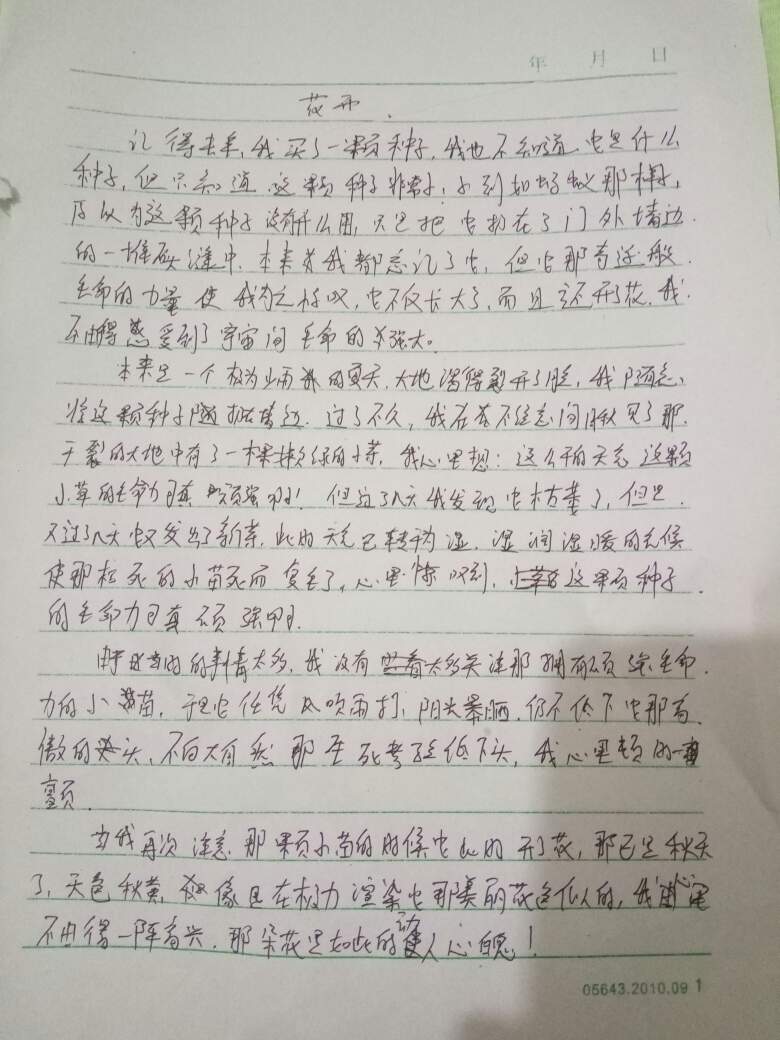 年 月 日
花开.
记得去年,我买了一颗种子,我也不知道它是什么
种子,但只知道这颗种子非常小,小到如蚂蚁那样子,
所以为这颗种子没有什么用,只是把它扔在了门外墙边
的一堆石头缝中.本来我都忘记了它,但它那奇迹般
生命的力量使我为之惊叹,它不仅长大了,而且还开了花.我
不由得感受到了宇宙间生命的强大。
本来是一个极为少雨的夏天,大地渴得裂开了腔,我随意
将这颗种子随扔在墙边.过了不久,我在若不经意间瞅见了那
干裂的大地中有了一棵嫩绿的小草,我心里想:这么干的天气这颗
小草的生命力可真顽强啊!但过了几天我发现它枯萎了,但是
又过了几天它又发出了新芽.此时天气已转为湿,湿润温暖的气候
使那枯死的小苗死而复生了,心里惊叹到,这颗种子
的生命力可真顽强啊!
由于的事情太多,我没有太多关注那拥有顽强生命
力的小苗,于是它任凭风吹雨打,阳光暴晒,仍不低下它那高
傲的头,不向大自然那生死考验低下头,我心里顿时一
震颤.
当我再次注意那颗小苗的时候它此时开了花,那已是秋天
了,天色秋黄,像是在极力渲染它那美丽花色似的,我心里
不由得一阵高兴.那朵花是如此的动人心魄!
05643.2010.09 1